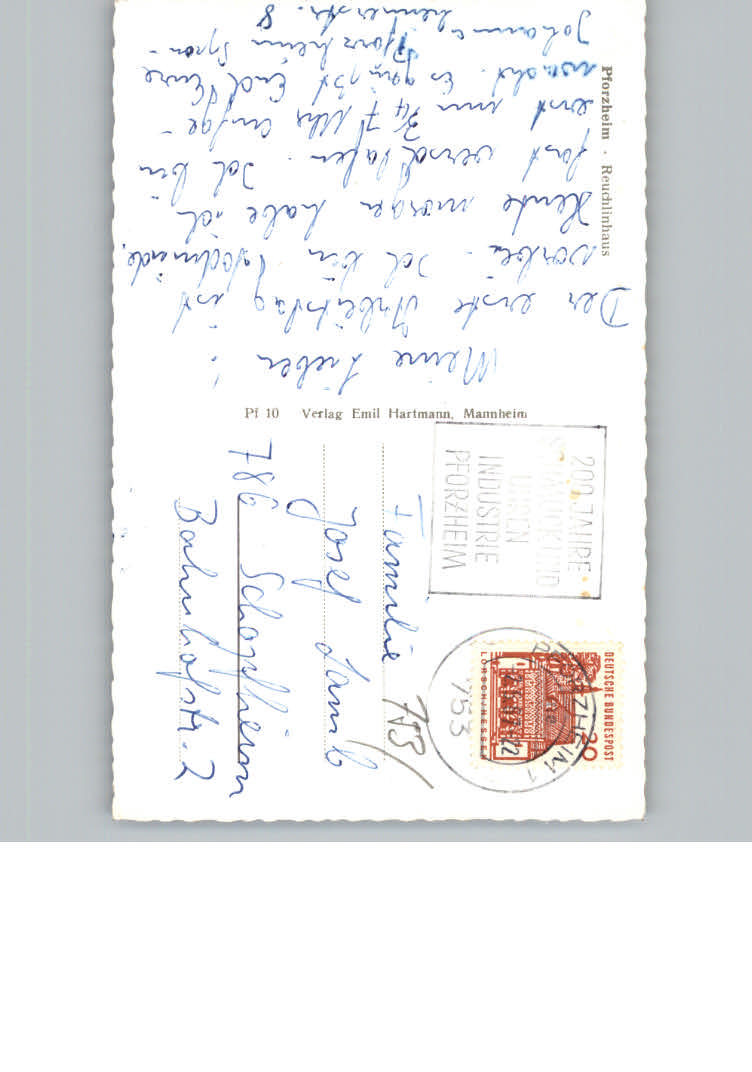 Pforzheim · Reuchlinhaus
Meine Lieben!
Der erste Arbeitstag ist
vorbei. Ich bin todmüde.
Heute morgen habe ich
fast verschlafen. Ich bin
erst um 3/4 7 Uhr aufge-
wacht. Es grüßt Euch Eure
Johanna, Pforzheim Spon-
heimerstr. 8
Pf 10 Verlag Emil Hartmann, Mannheim
200 JAHRE
SCHMUCK UND
UHREN
INDUSTRIE
PFORZHEIM
DEUTSCHE BUNDESPOST
20
LORSCH/HESSEN
PFORZHEIM 1
753
753
Familie
Josef Lamb
786 Schopfheim
Bahnhofstr. 2